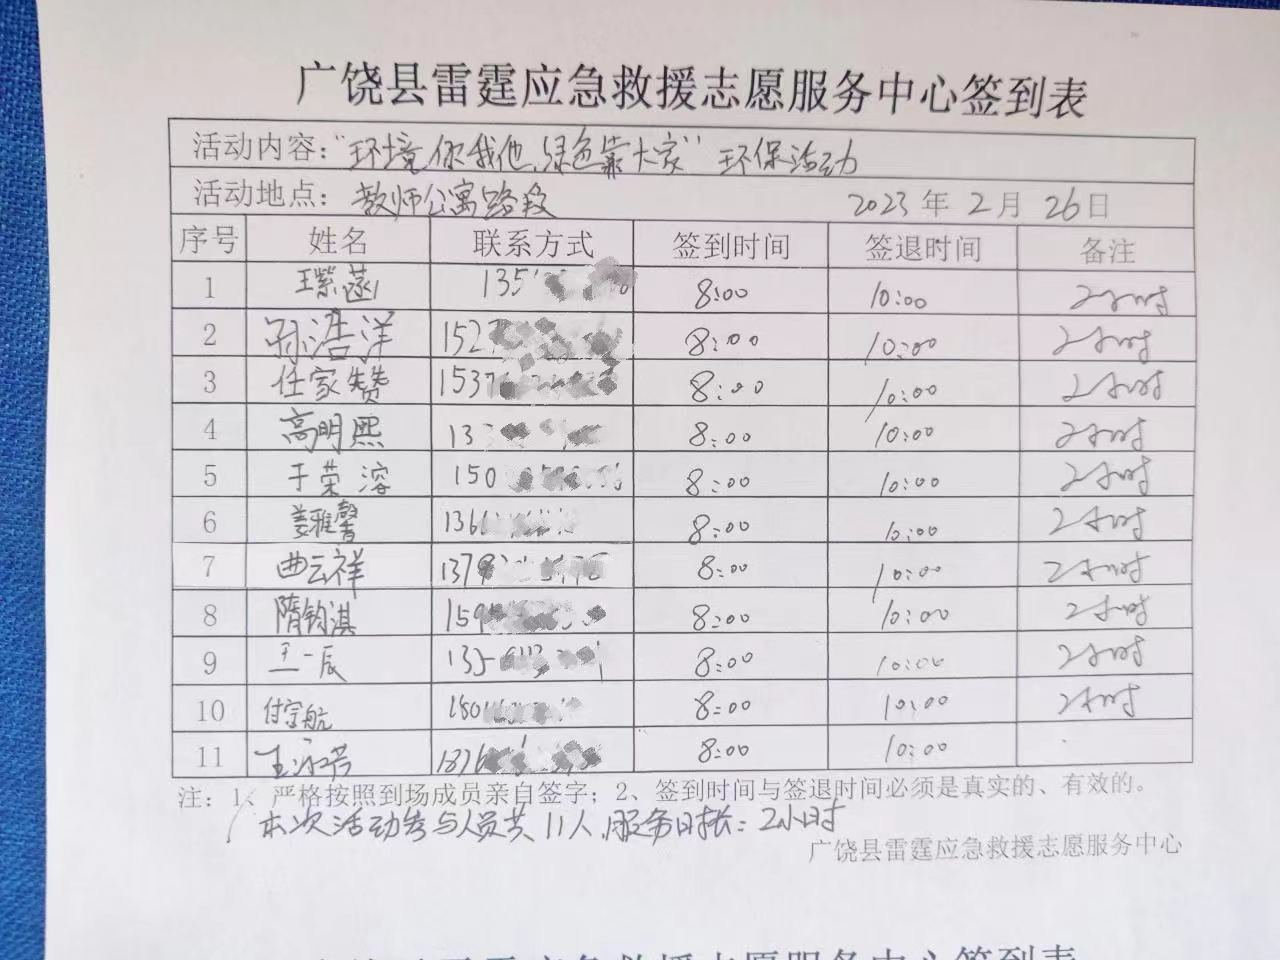 广饶县雷霆应急救援志愿服务中心签到表
活动内容："环境你我他，绿色靠大家"环保活动
活动地点：教师公寓路段 2023年2月26日
序号 姓名 联系方式 签到时间 签退时间 备注
1 王紫菡 135 8:00 10:00 2小时
2 孙浩洋 152 8:00 10:00 2小时
3 任家赞 1537 8:00 10:00 2小时
4 高明熙 13 8:00 10:00 2小时
5 于荣溶 150 8:00 10:00 2小时
6 姜雅馨 136 8:00 10:00 2小时
7 曲云祥 137 8:00 10:00 2小时
8 隋钧淇 159 8:00 10:00 2小时
9 王一辰 135 8:00 10:00 2小时
10 付宇航 150 8:00 10:00 2小时
11 王 1376 8:00 10:00
注：1、严格按照到场成员亲自签字；2、签到时间与签退时间必须是真实的、有效的。
本次活动参与人员共11人，服务时长：2小时
广饶县雷霆应急救援志愿服务中心
应急救援志愿服务中心签到表